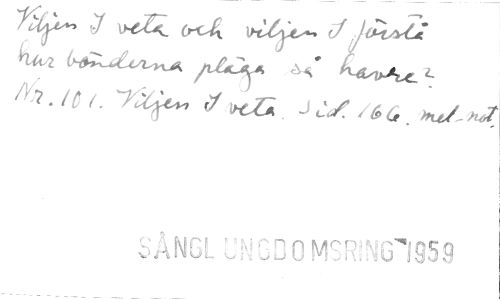 Viljen I veta och viljen I förstå
hur bönderna pläga så havre?
Nr. 101. Viljen I veta. Sid. 166. mel-not.
SÅNGL UNGDOMSRING 1959